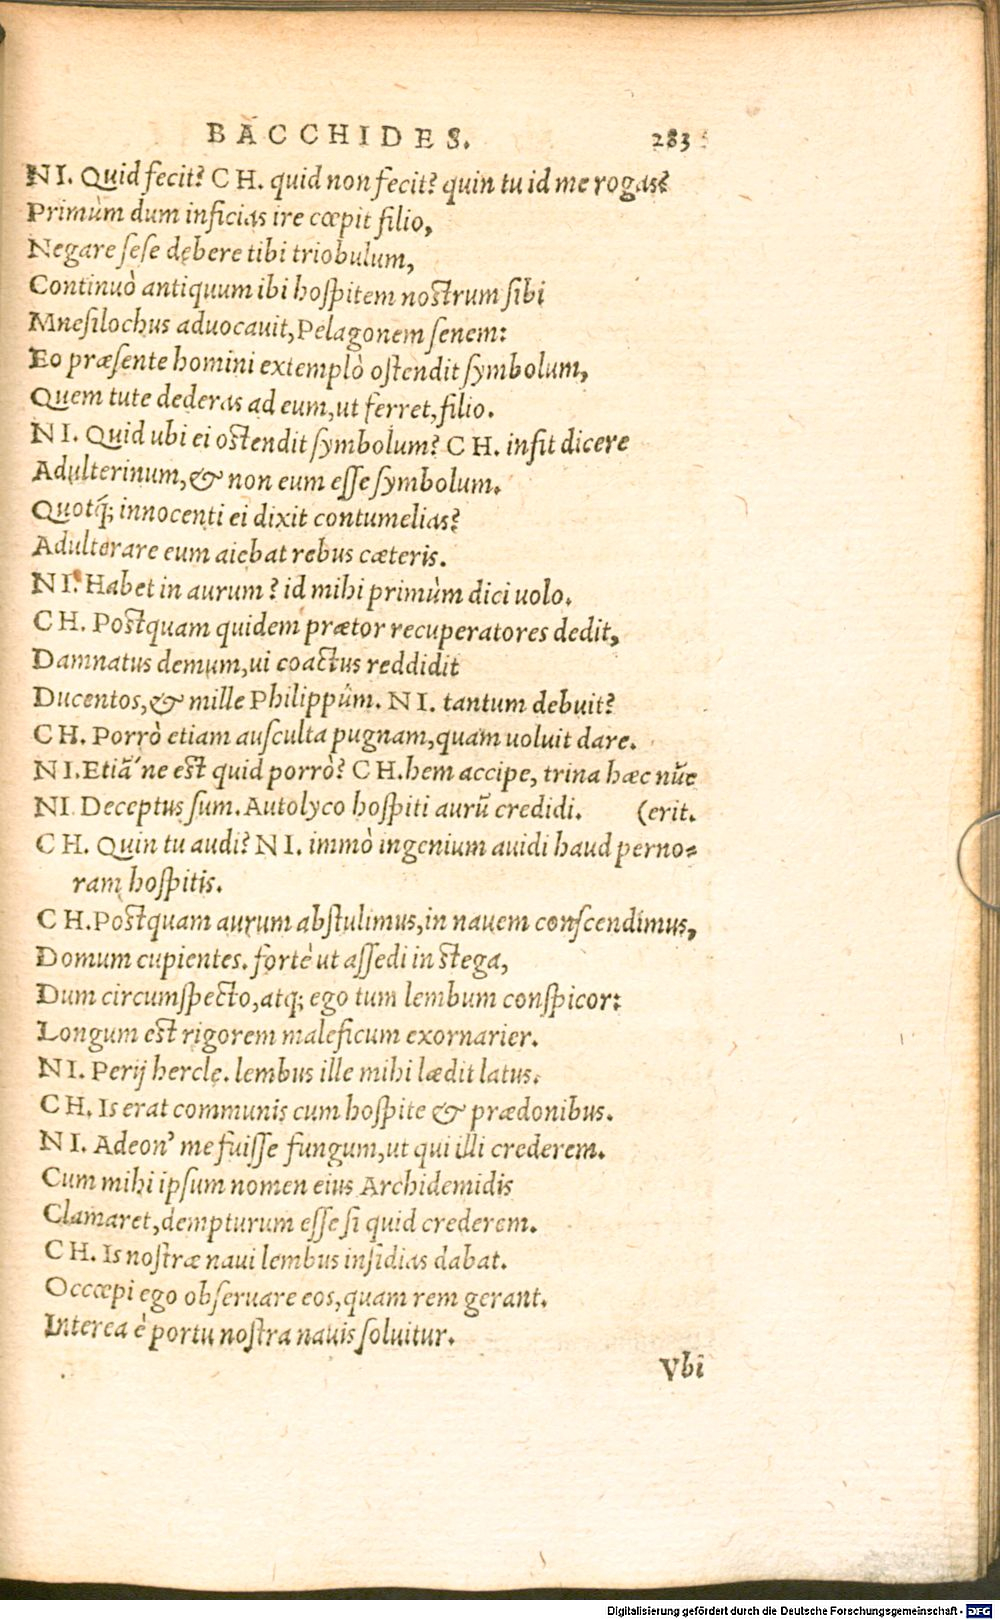 BACCHIDES. 283
NI. Quid fecit? CH. quid non fecit? quin tu id me rogas?
Primùm dum inficias ire cœpit filio,
Negare sese debere tibi triobulum,
Continuò antiquum ibi hospitem nostrum sibi
Mnesilochus aduocauit, Pelagonem senem:
Eo præsente homini extemplò ostendit symbolum,
Quem tute dederas ad eum, ut ferret, filio.
NI. Quid ubi ei ostendit symbolum? CH. insit dicere
Adulterinum, & non eum esse symbolum.
Quotq́; innocenti ei dixit contumelias?
Adulterare eum aiebat rebus cæteris.
NI. Habet in aurum? id mihi primùm dici uolo.
CH. Postquam quidem prætor recuperatores dedit,
Damnatus demum, ui coactus reddidit
Ducentos, & mille Philippûm. NI. tantum debuit?
CH. Porrò etiam ausculta pugnam, quam uoluit dare.
NI. Etiã´ne est quid porrò? CH. hem accipe, trina hæc nũc
NI. Deceptus sum. Autolyco hospiti aurũ credidi. (erit.
CH. Quin tu audi? NI. immò ingenium auidi haud perno=
ram hospitis.
CH. Postquam aurum abstulimus, in nauem conscendimus,
Domum cupientes. fortè ut assedi in stega,
Dum circumspecto, atq; ego tum lembum conspicor:
Longum est rigorem maleficum exornarier.
NI. Perij hercle. lembus ille mihi lædit latus.
CH. Is erat communis cum hospite & prædonibus.
NI. Adeon' me fuisse fungum, ut qui illi crederem.
Cum mihi ipsum nomen eius Archidemidis
Clamaret, dempturum esse si quid crederem.
CH. Is nostræ naui lembus insidias dabat.
Occœpi ego obseruare eos, quam rem gerant.
Interea è portu nostra nauis soluitur.
Vbi
Digitalisierung gefördert durch die Deutsche Forschungsgemeinschaft - DFG